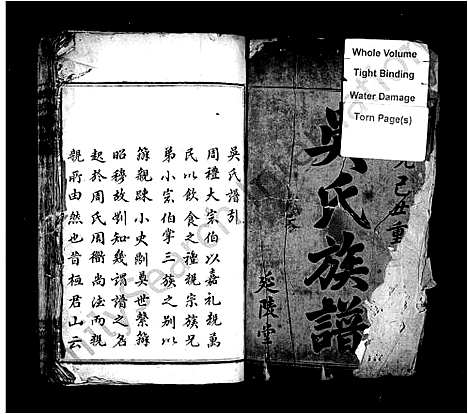 Whole Volume
Tight Binding
Water Damage
Torn Page(s)
己丑重
吳氏族譜
延陵堂
吳氏譜引
周禮大宗伯以嘉禮親萬
民以飲食之禮親宗族兄
弟小宗伯掌三族之別以
辨親疎小史則奠世繫辨
昭穆故劉知幾謂譜之名
起於周氏周衛尚法而親
親所由然也昔桓君山云